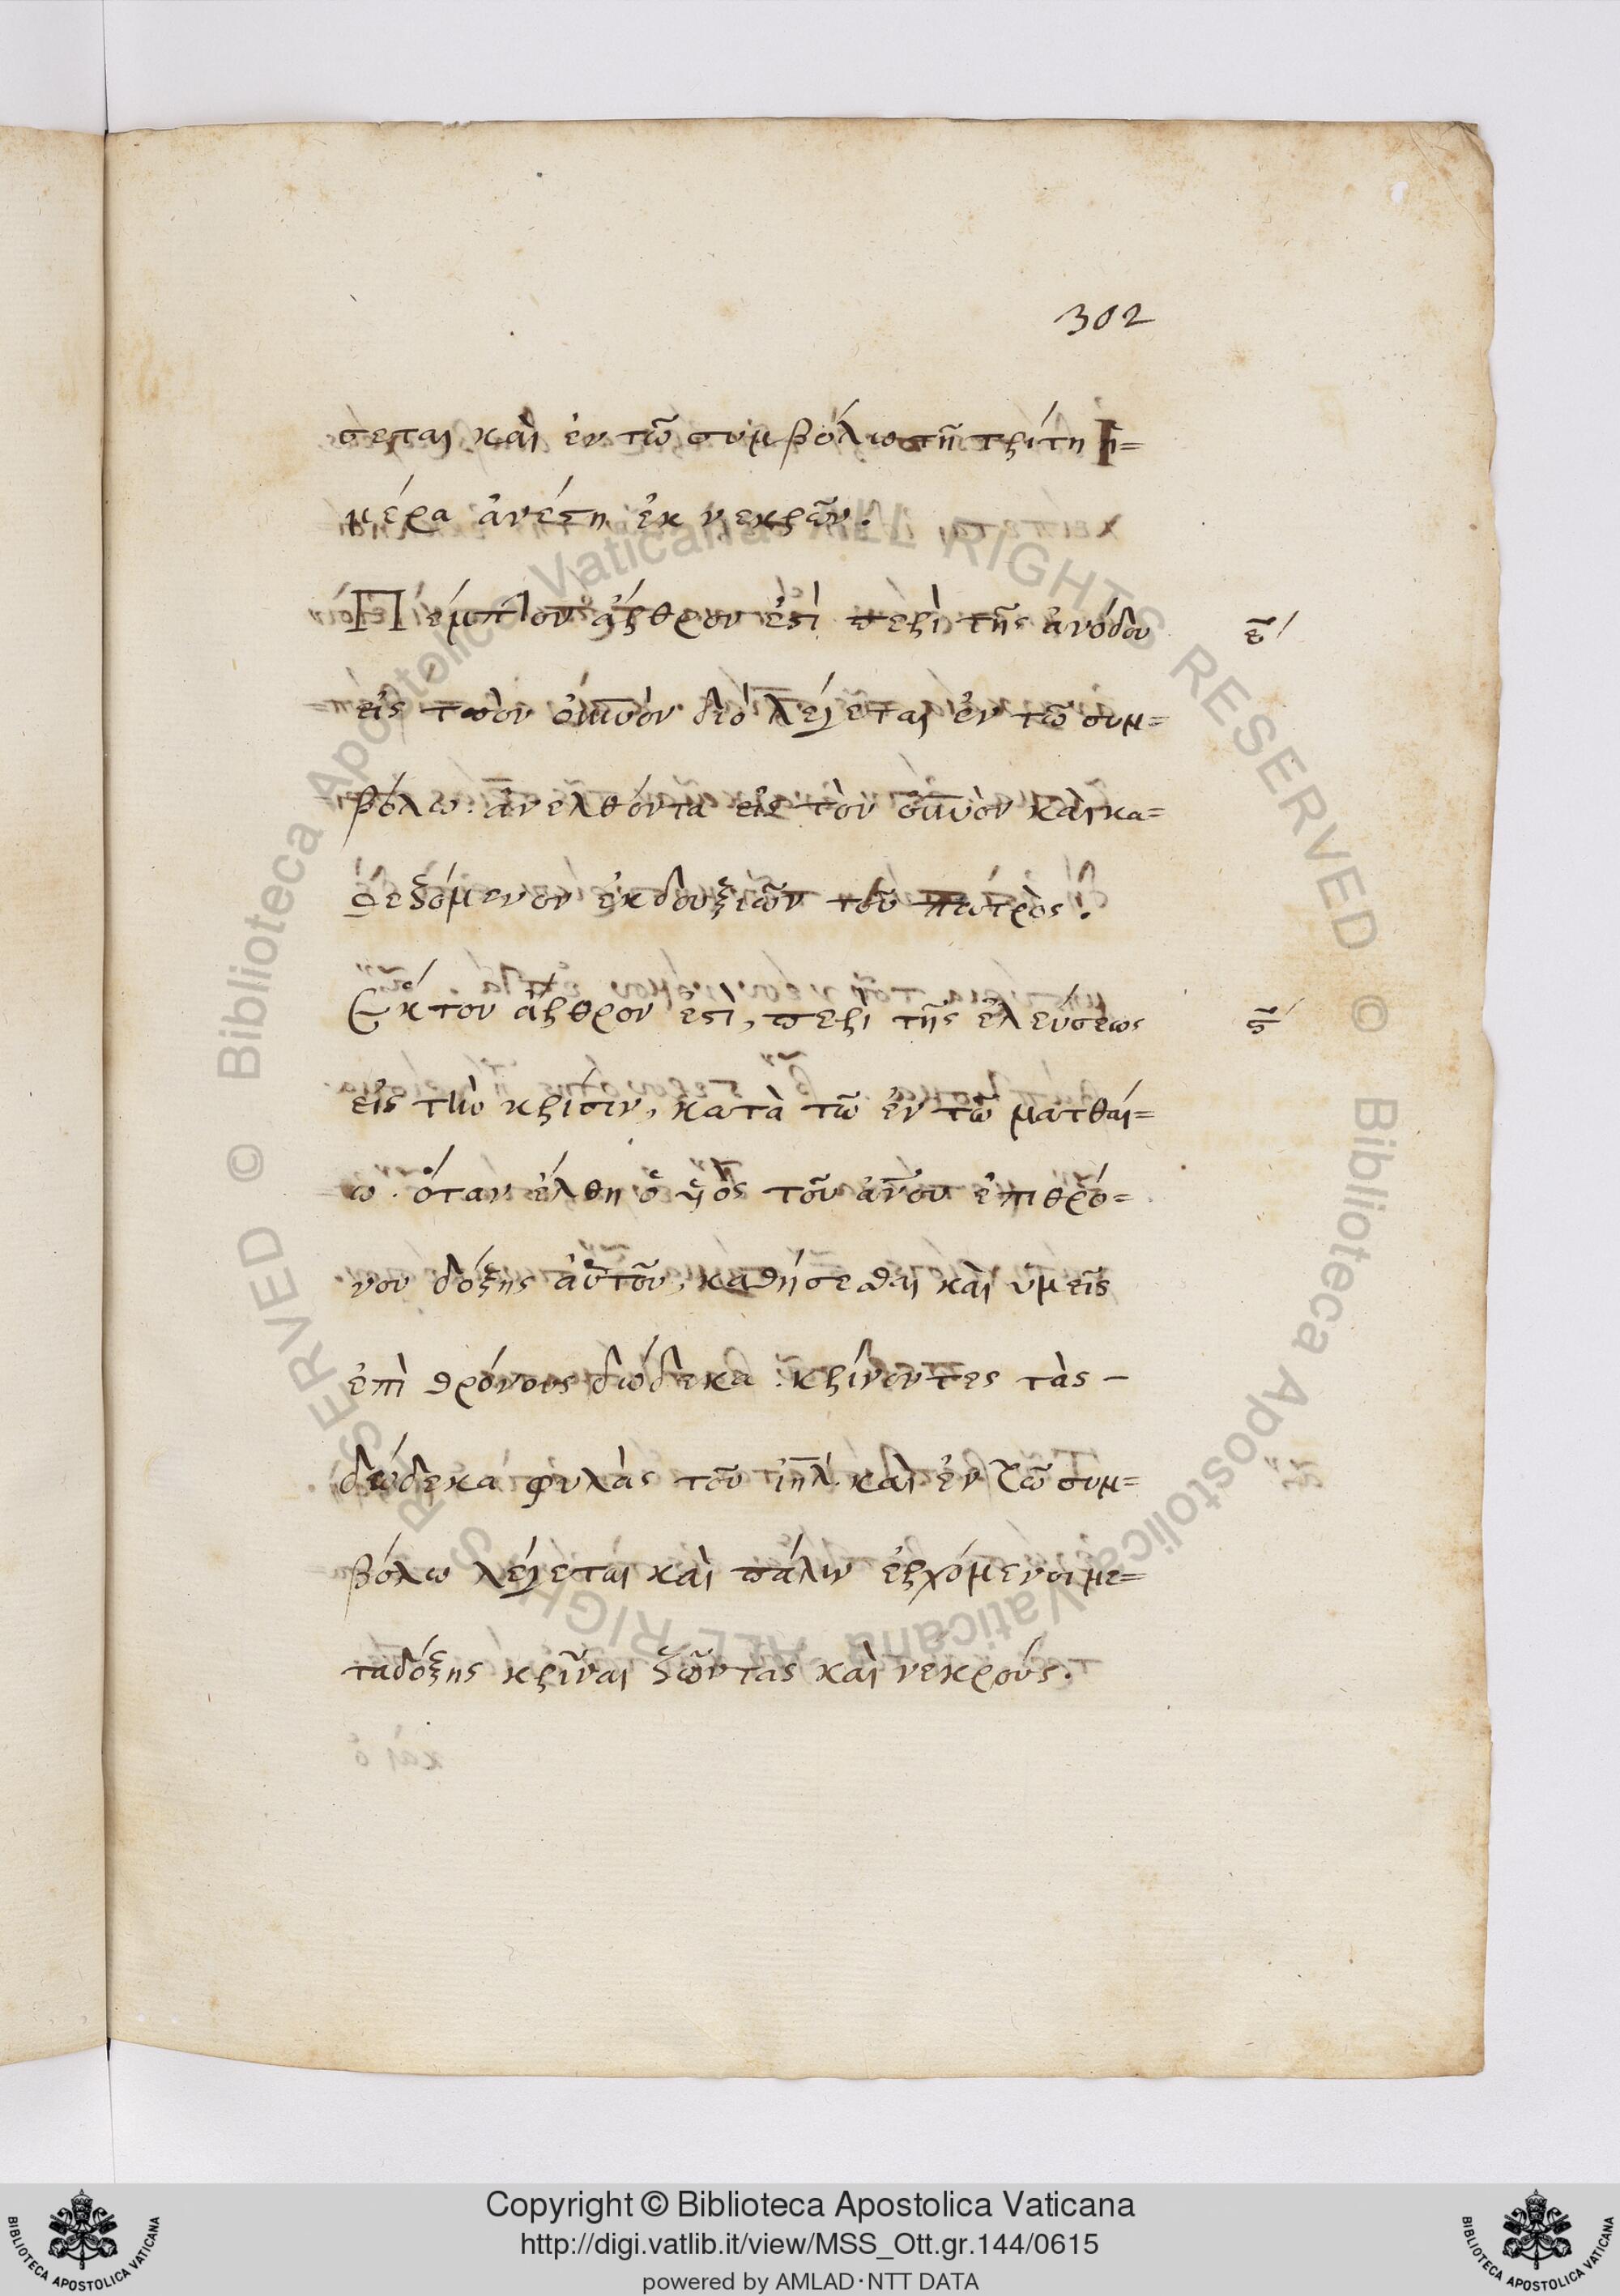 302
σεται καὶ ἐν τῶ συμβόλω τῆ τρίτη ἡ=
μέρα ἀνέστη ἐκ νεκρῶν.
Πέμπτον ἄρθρον ἐστὶ περὶ τῆς ἀνόδου
ε̄′
εἰς τὸν οὐνὸν διὸ λέγεται ἐν τῶ συμ=
βόλω. ἀνελθόντα εἰς τὸν οὐνὸν καὶ κα=
θεζόμενον ἐκ δεξιῶν τοῦ πατρὸς.
Ἕκτον ἄρθρον ἐστι, περὶ τῆς ἐλεύσεως
ς̄′
εἰς τὴν κρίσιν, κατὰ τῶ ἐν τῶ ματθαί=
ω. ὅταν ἔλθη ὁ υἱὸς τοῦ ἀνου ἐπι θρό=
νου δόξης αὐτοῦ, καθήσεσθαι καὶ ὑμεῖς
ἐπὶ θρόνους δώδεκα κρίνοντες τὰς –
δώδεκα φυλὰς τοῦ ἰηλ. καὶ ἐν τῶ συμ=
βόλω λέγεται καὶ πάλιν ἐρχόμενοι με=
τα δόξης κρῖναι ζῶντας καὶ νεκρούς.
Copyright © Biblioteca Apostolica Vaticana
http://digi.vatlib.it/view/MSS_Ott.gr.144/0615
powered by AMLAD·NTT DATA
BIBLIOTECA APOSTOLICA VATICANA
BIBLIOTECA APOSTOLICA VATICANA
© Biblioteca Apostolica Vaticana ALL RIGHTS RESERVED
© Biblioteca Apostolica Vaticana ALL RIGHTS RESERVED